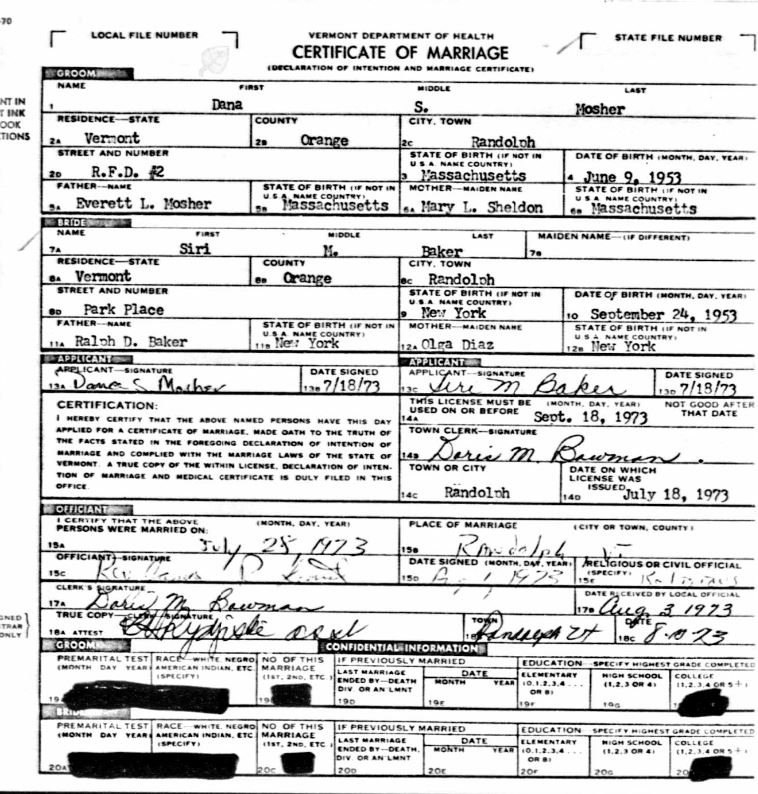 -70
LOCAL FILE NUMBER
VERMONT DEPARTMENT OF HEALTH
STATE FILE NUMBER
CERTIFICATE OF MARRIAGE
(DECLARATION OF INTENTION AND MARRIAGE CERTIFICATE)
NT IN
T INK
OOK
TIONS
GROOM
NAME FIRST MIDDLE LAST
1 Dana S. Mosher
RESIDENCE—STATE COUNTY CITY, TOWN
2A Vermont 2B Orange 2C Randolph
STREET AND NUMBER STATE OF BIRTH (IF NOT IN U.S.A. NAME COUNTRY) DATE OF BIRTH (MONTH, DAY, YEAR)
2D R.F.D. #2 3 Massachusetts 4 June 9, 1953
FATHER—NAME STATE OF BIRTH (IF NOT IN U.S.A. NAME COUNTRY) MOTHER—MAIDEN NAME STATE OF BIRTH (IF NOT IN U.S.A. NAME COUNTRY)
5A Everett L. Mosher 5B Massachusetts 6A Mary L. Sheldon 6B Massachusetts
BRIDE
NAME FIRST MIDDLE LAST MAIDEN NAME—(IF DIFFERENT)
7A Siri M. Baker 7B
RESIDENCE—STATE COUNTY CITY, TOWN
8A Vermont 8B Orange 8C Randolph
STREET AND NUMBER STATE OF BIRTH (IF NOT IN U.S.A. NAME COUNTRY) DATE OF BIRTH (MONTH, DAY, YEAR)
8D Park Place 9 New York 10 September 24, 1953
FATHER—NAME STATE OF BIRTH (IF NOT IN U.S.A. NAME COUNTRY) MOTHER—MAIDEN NAME STATE OF BIRTH (IF NOT IN U.S.A. NAME COUNTRY)
11A Ralph D. Baker 11B New York 12A Olga Diaz 12B New York
APPLICANT APPLICANT
APPLICANT—SIGNATURE DATE SIGNED APPLICANT—SIGNATURE DATE SIGNED
13A Dana S Mosher 13B 7/18/73 13C Siri M Baker 13D 7/18/73
CERTIFICATION:
I HEREBY CERTIFY THAT THE ABOVE NAMED PERSONS HAVE THIS DAY
APPLIED FOR A CERTIFICATE OF MARRIAGE, MADE OATH TO THE TRUTH OF
THE FACTS STATED IN THE FOREGOING DECLARATION OF INTENTION OF
MARRIAGE AND COMPLIED WITH THE MARRIAGE LAWS OF THE STATE OF
VERMONT. A TRUE COPY OF THE WITHIN LICENSE, DECLARATION OF INTEN-
TION OF MARRIAGE AND MEDICAL CERTIFICATE IS DULY FILED IN THIS
OFFICE.
THIS LICENSE MUST BE USED ON OR BEFORE (MONTH, DAY, YEAR) NOT GOOD AFTER THAT DATE
14A Sept. 18, 1973
TOWN CLERK—SIGNATURE
14B Doris M. Bowman.
TOWN OR CITY DATE ON WHICH LICENSE WAS ISSUED
14C Randolph 14D July 18, 1973
OFFICIANT
I CERTIFY THAT THE ABOVE PERSONS WERE MARRIED ON: (MONTH, DAY, YEAR) PLACE OF MARRIAGE (CITY OR TOWN, COUNTY)
15A July 28, 1973 15B Randolph
OFFICIANT—SIGNATURE DATE SIGNED (MONTH, DAY, YEAR) RELIGIOUS OR CIVIL OFFICIAL (SPECIFY)
15C 15D 1973 15E Religious
CLERK'S SIGNATURE DATE RECEIVED BY LOCAL OFFICIAL
17A Doris M Bowman 17B Aug 3 1973
GNED
TRAR
ONLY
TRUE COPY—CLERK SIGNATURE TOWN DATE
18A ATTEST 18B Randolph Vt 18C 8-10-73
GROOM CONFIDENTIAL INFORMATION
PREMARITAL TEST (MONTH DAY YEAR) RACE—WHITE, NEGRO, AMERICAN INDIAN, ETC. (SPECIFY) NO OF THIS MARRIAGE (1ST, 2ND, ETC.) IF PREVIOUSLY MARRIED EDUCATION SPECIFY HIGHEST GRADE COMPLETED
LAST MARRIAGE ENDED BY—DEATH DIV OR AN'LMNT DATE MONTH YEAR ELEMENTARY (0,1,2,3,4... OR 8) HIGH SCHOOL (1,2,3 OR 4) COLLEGE (1,2,3,4 OR 5+)
19 19 19D 19E 19F 19G
BRIDE
PREMARITAL TEST (MONTH DAY YEAR) RACE—WHITE, NEGRO, AMERICAN INDIAN, ETC. (SPECIFY) NO OF THIS MARRIAGE (1ST, 2ND, ETC.) IF PREVIOUSLY MARRIED EDUCATION SPECIFY HIGHEST GRADE COMPLETED
LAST MARRIAGE ENDED BY—DEATH, DIV. OR AN'LMNT DATE MONTH YEAR ELEMENTARY (0,1,2,3,4... OR 8) HIGH SCHOOL (1,2,3 OR 4) COLLEGE (1,2,3,4 OR 5+)
20A 20C 20D 20E 20F 20G 20